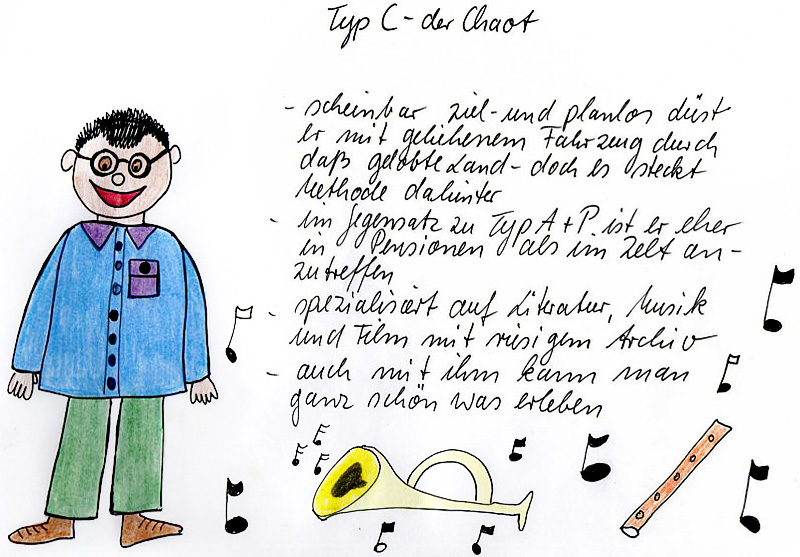 Typ C - der Chaot
- scheinbar ziel- und planlos düst
er mit geliehenem Fahrzeug durch
daß gelobte Land - doch es steckt
Methode dahinter
- im Gegensatz zu Typ A + P. ist er eher
in Pensionen als im Zelt an-
zutreffen
- spezialisiert auf Literatur, Musik
und Film mit riesigem Archiv
- auch mit ihm kann man
ganz schön was erleben